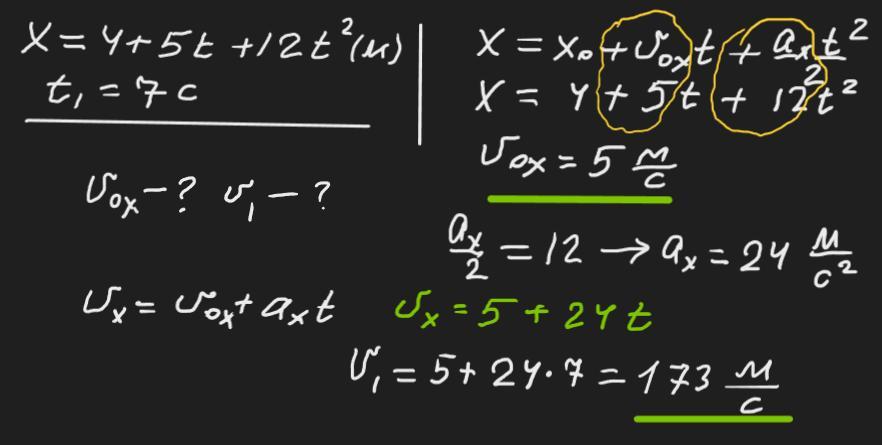 x = 4 + 5t + 12t² (м)
t₁ = 7 с
υ₀ₓ - ? υ₁ - ?
υₓ = υ₀ₓ + aₓt
x = x₀ + υ₀ₓt + aₓt²/2
x = 4 + 5t + 12t²
υ₀ₓ = 5 м/с
aₓ/2 = 12 → aₓ = 24 м/с²
υₓ = 5 + 24t
υ₁ = 5 + 24·7 = 173 м/с